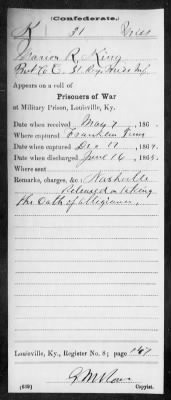 (Confederate.)
K 31 Miss
Marion R. King
Pvt Co E, 31 Reg't Miss Inf.
Appears on a roll of
Prisoners of War
at Military Prison, Louisville, Ky.
Date when received May 7, 186
Where captured Franklin Tenn
Date when captured Dec 17, 186
Date when discharged June 16, 1865.
Where sent
Remarks, charges, &c.: Nashville
Released on taking
the Oath of Allegiance.
Louisville, Ky., Register No. 8; page
(639) Copyist.